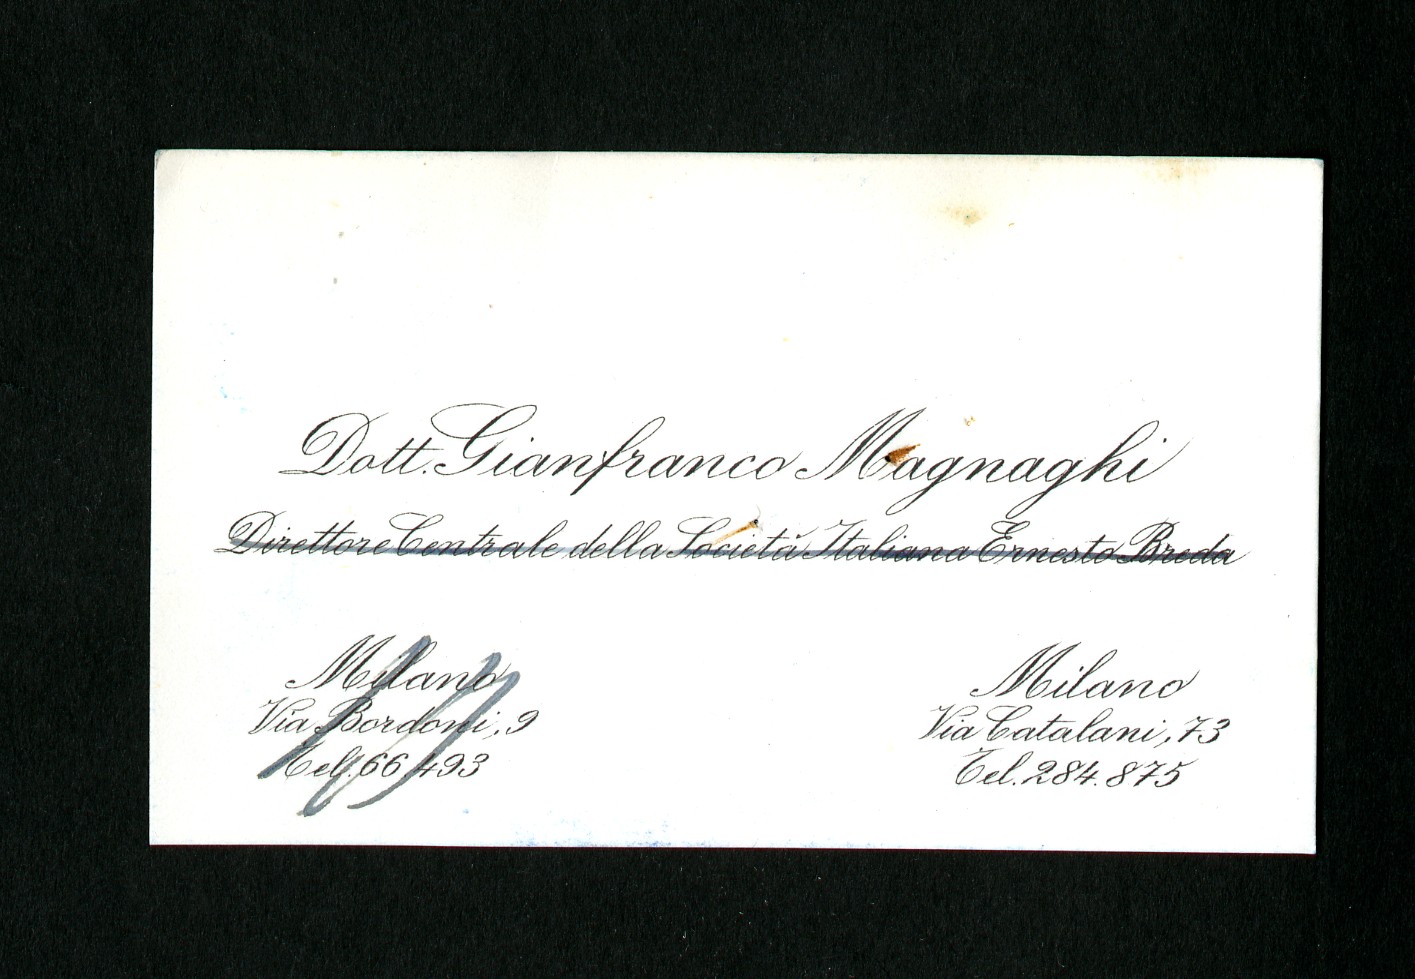 Dott. Gianfranco Magnaghi
Direttore Centrale della Società Italiana Ernesto Breda
Milano
Via Bordoni, 9
Tel. 66 493
Milano
Via Catalani, 73
Tel. 284.875